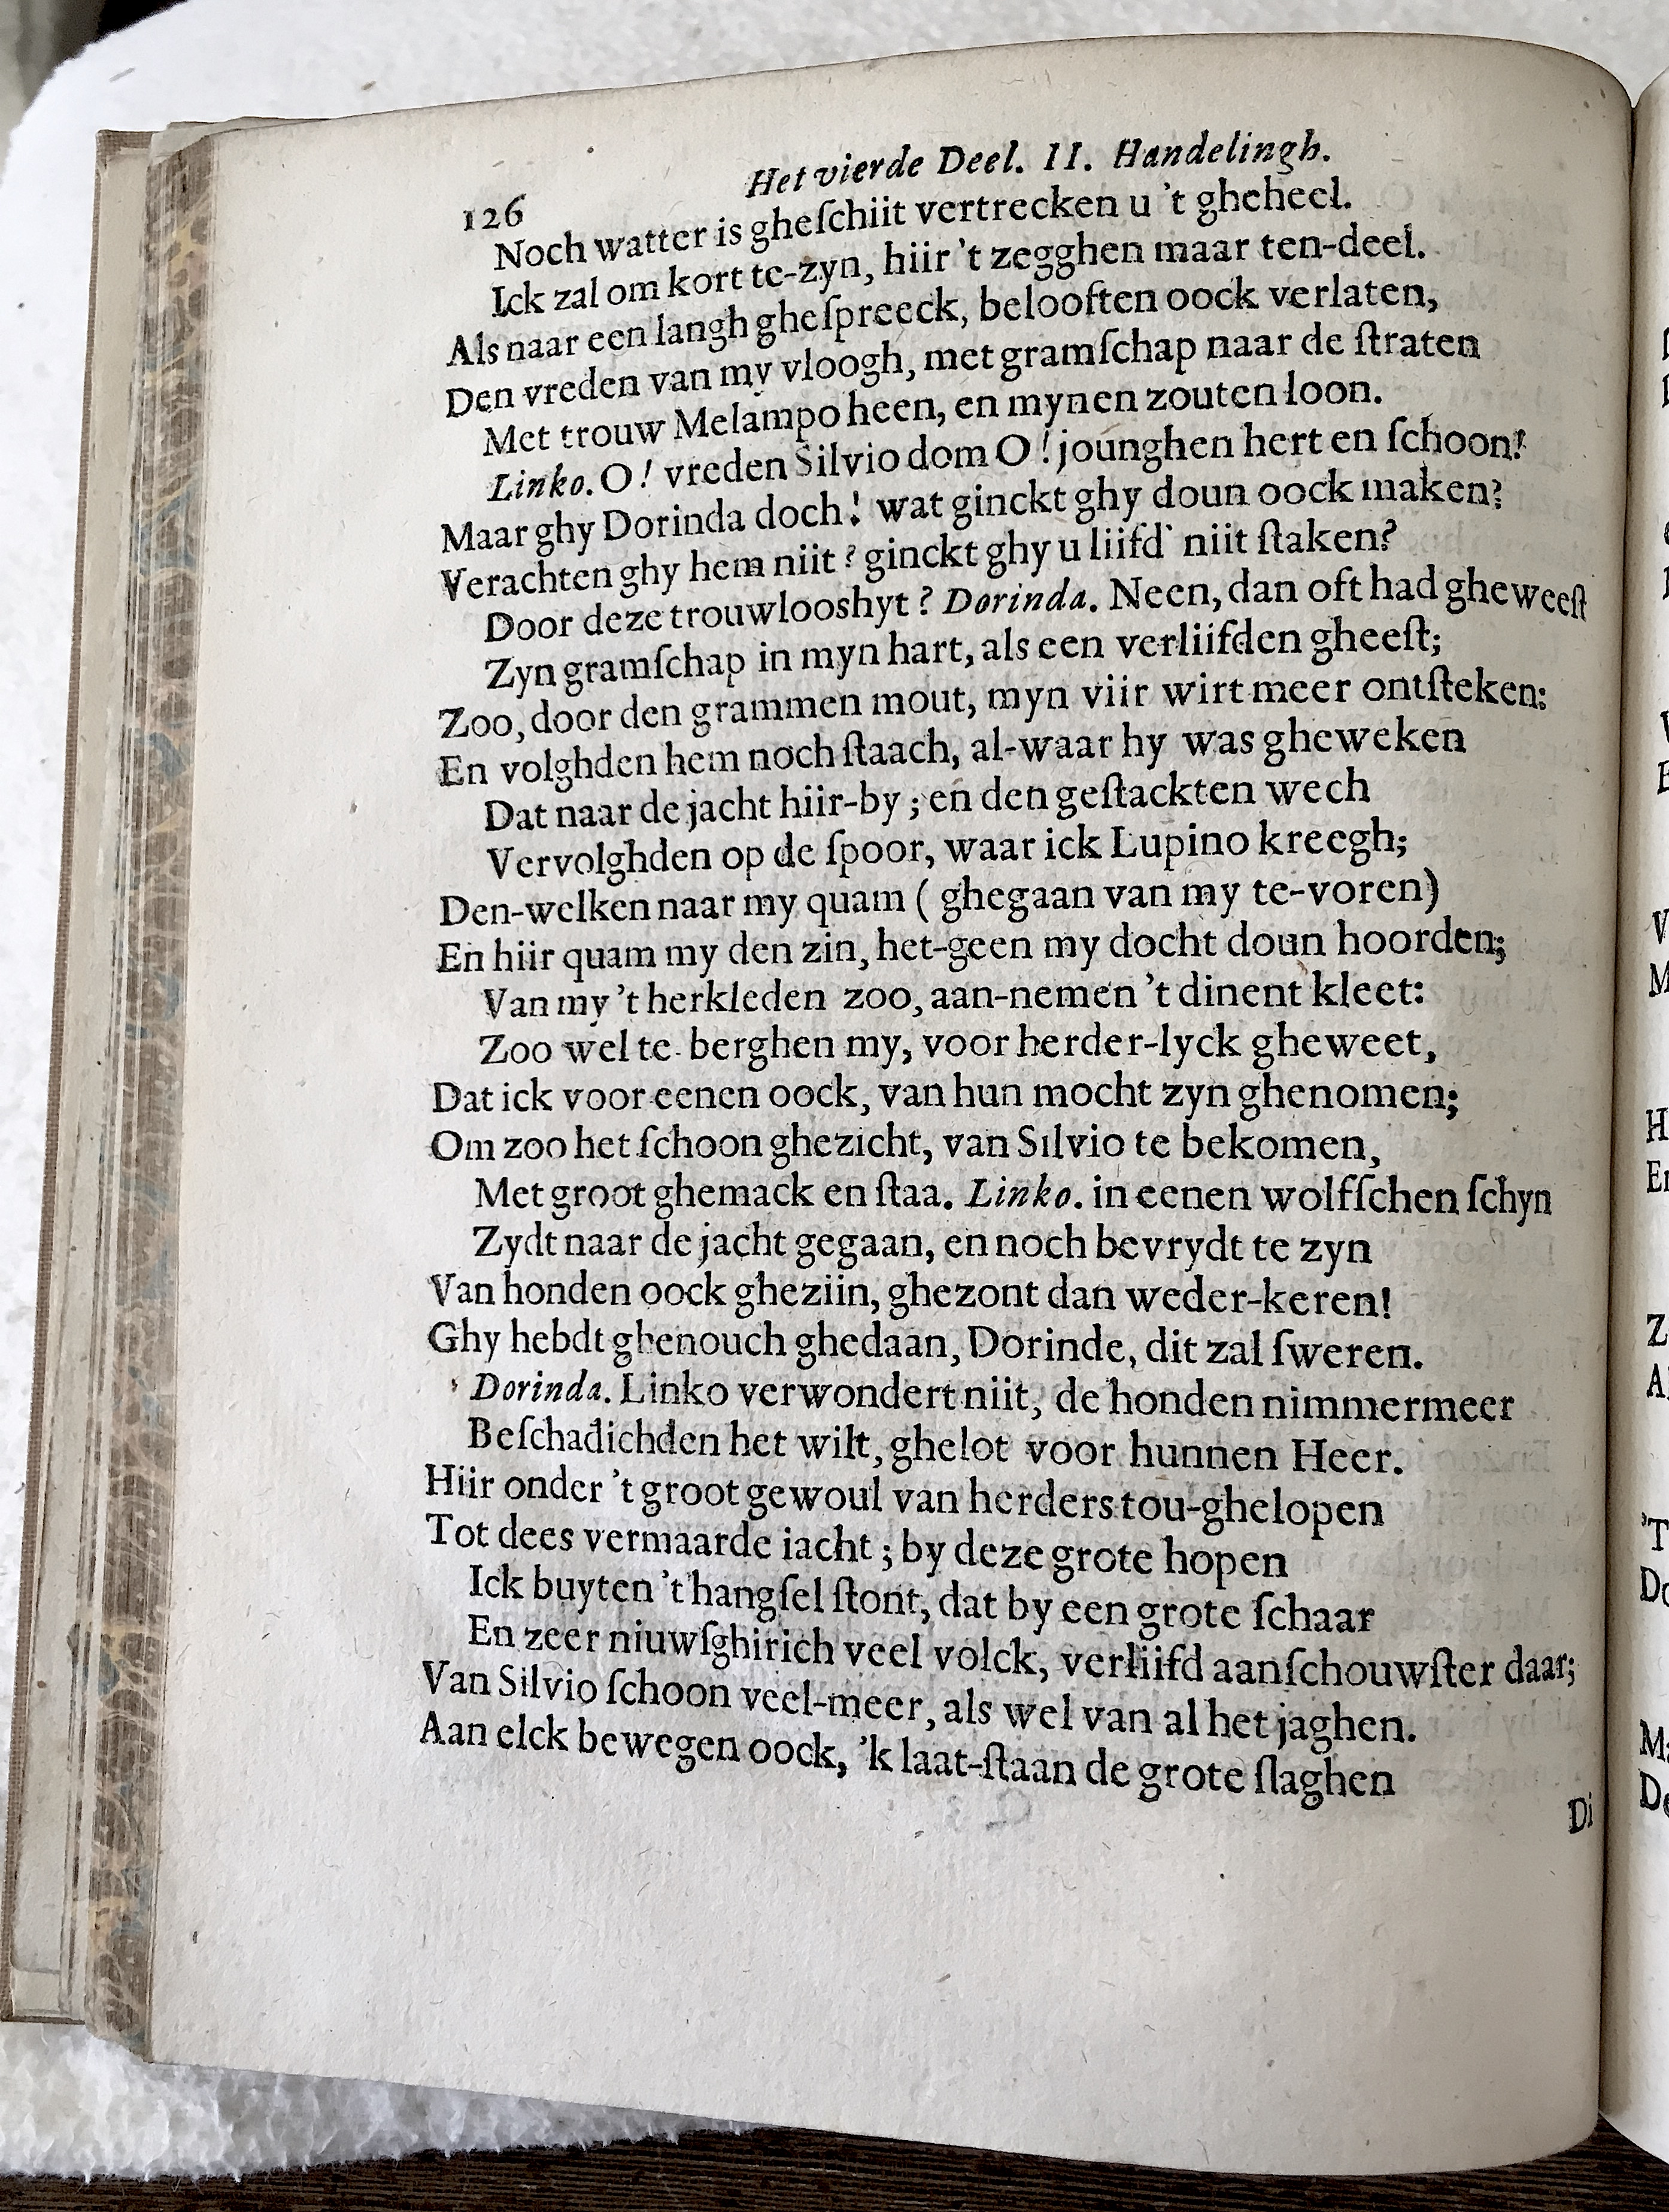 126 Het vierde Deel. II. Handelingh.
Noch watter is gheſchiit vertrecken u 't gheheel.
Ick zal om kort te-zyn, hiir 't zegghen maar ten-deel.
Als naar een langh gheſpreeck, belooften oock verlaten,
Den vreden van my vloogh, met gramſchap naar de ſtraten
Met trouw Melampo heen, en mynen zouten loon.
Linko. O! vreden Silvio dom O! jounghen hert en ſchoon!
Maar ghy Dorinda doch! wat ginckt ghy doun oock maken?
Verachten ghy hem niit? ginckt ghy u liifd' niit ſtaken?
Door deze trouwlooshyt? Dorinda. Neen, dan oft had gheweeſt
Zyn gramſchap in myn hart, als een verliifden gheeſt;
Zoo, door den grammen mout, myn viir wirt meer ontſteken:
En volghden hem noch ſtaach, al-waar hy was gheweken
Dat naar de jacht hiir-by; en den geſtackten wech
Vervolghden op de ſpoor, waar ick Lupino kreegh;
Den-welken naar my quam (ghegaan van my te-voren)
En hiir quam my den zin, het-geen my docht doun hoorden;
Van my 't herkleden zoo, aan-nemen 't dinent kleet:
Zoo wel te berghen my, voor herder-lyck gheweet,
Dat ick voor eenen oock, van hun mocht zyn ghenomen;
Om zoo het ſchoon ghezicht, van Silvio te bekomen,
Met groot ghemack en ſtaa. Linko. in eenen wolfſchen ſchyn
Zydt naar de jacht gegaan, en noch bevrydt te zyn
Van honden oock gheziin, ghezont dan weder-keren!
Ghy hebdt ghenouch ghedaan, Dorinde, dit zal ſweren.
Dorinda. Linko verwondert niit, de honden nimmermeer
Beſchadichden het wilt, ghelot voor hunnen Heer.
Hiir onder 't groot gewoul van herders tou-ghelopen
Tot dees vermaarde iacht; by deze grote hopen
Ick buyten 't hangſel ſtont, dat by een grote ſchaar
En zeer niuwſghirich veel volck, verliifd aanſchouwſter daar;
Van Silvio ſchoon veel-meer, als wel van al het jaghen.
Aan elck bewegen oock, 'k laat-ſtaan de grote ſlaghen
Di